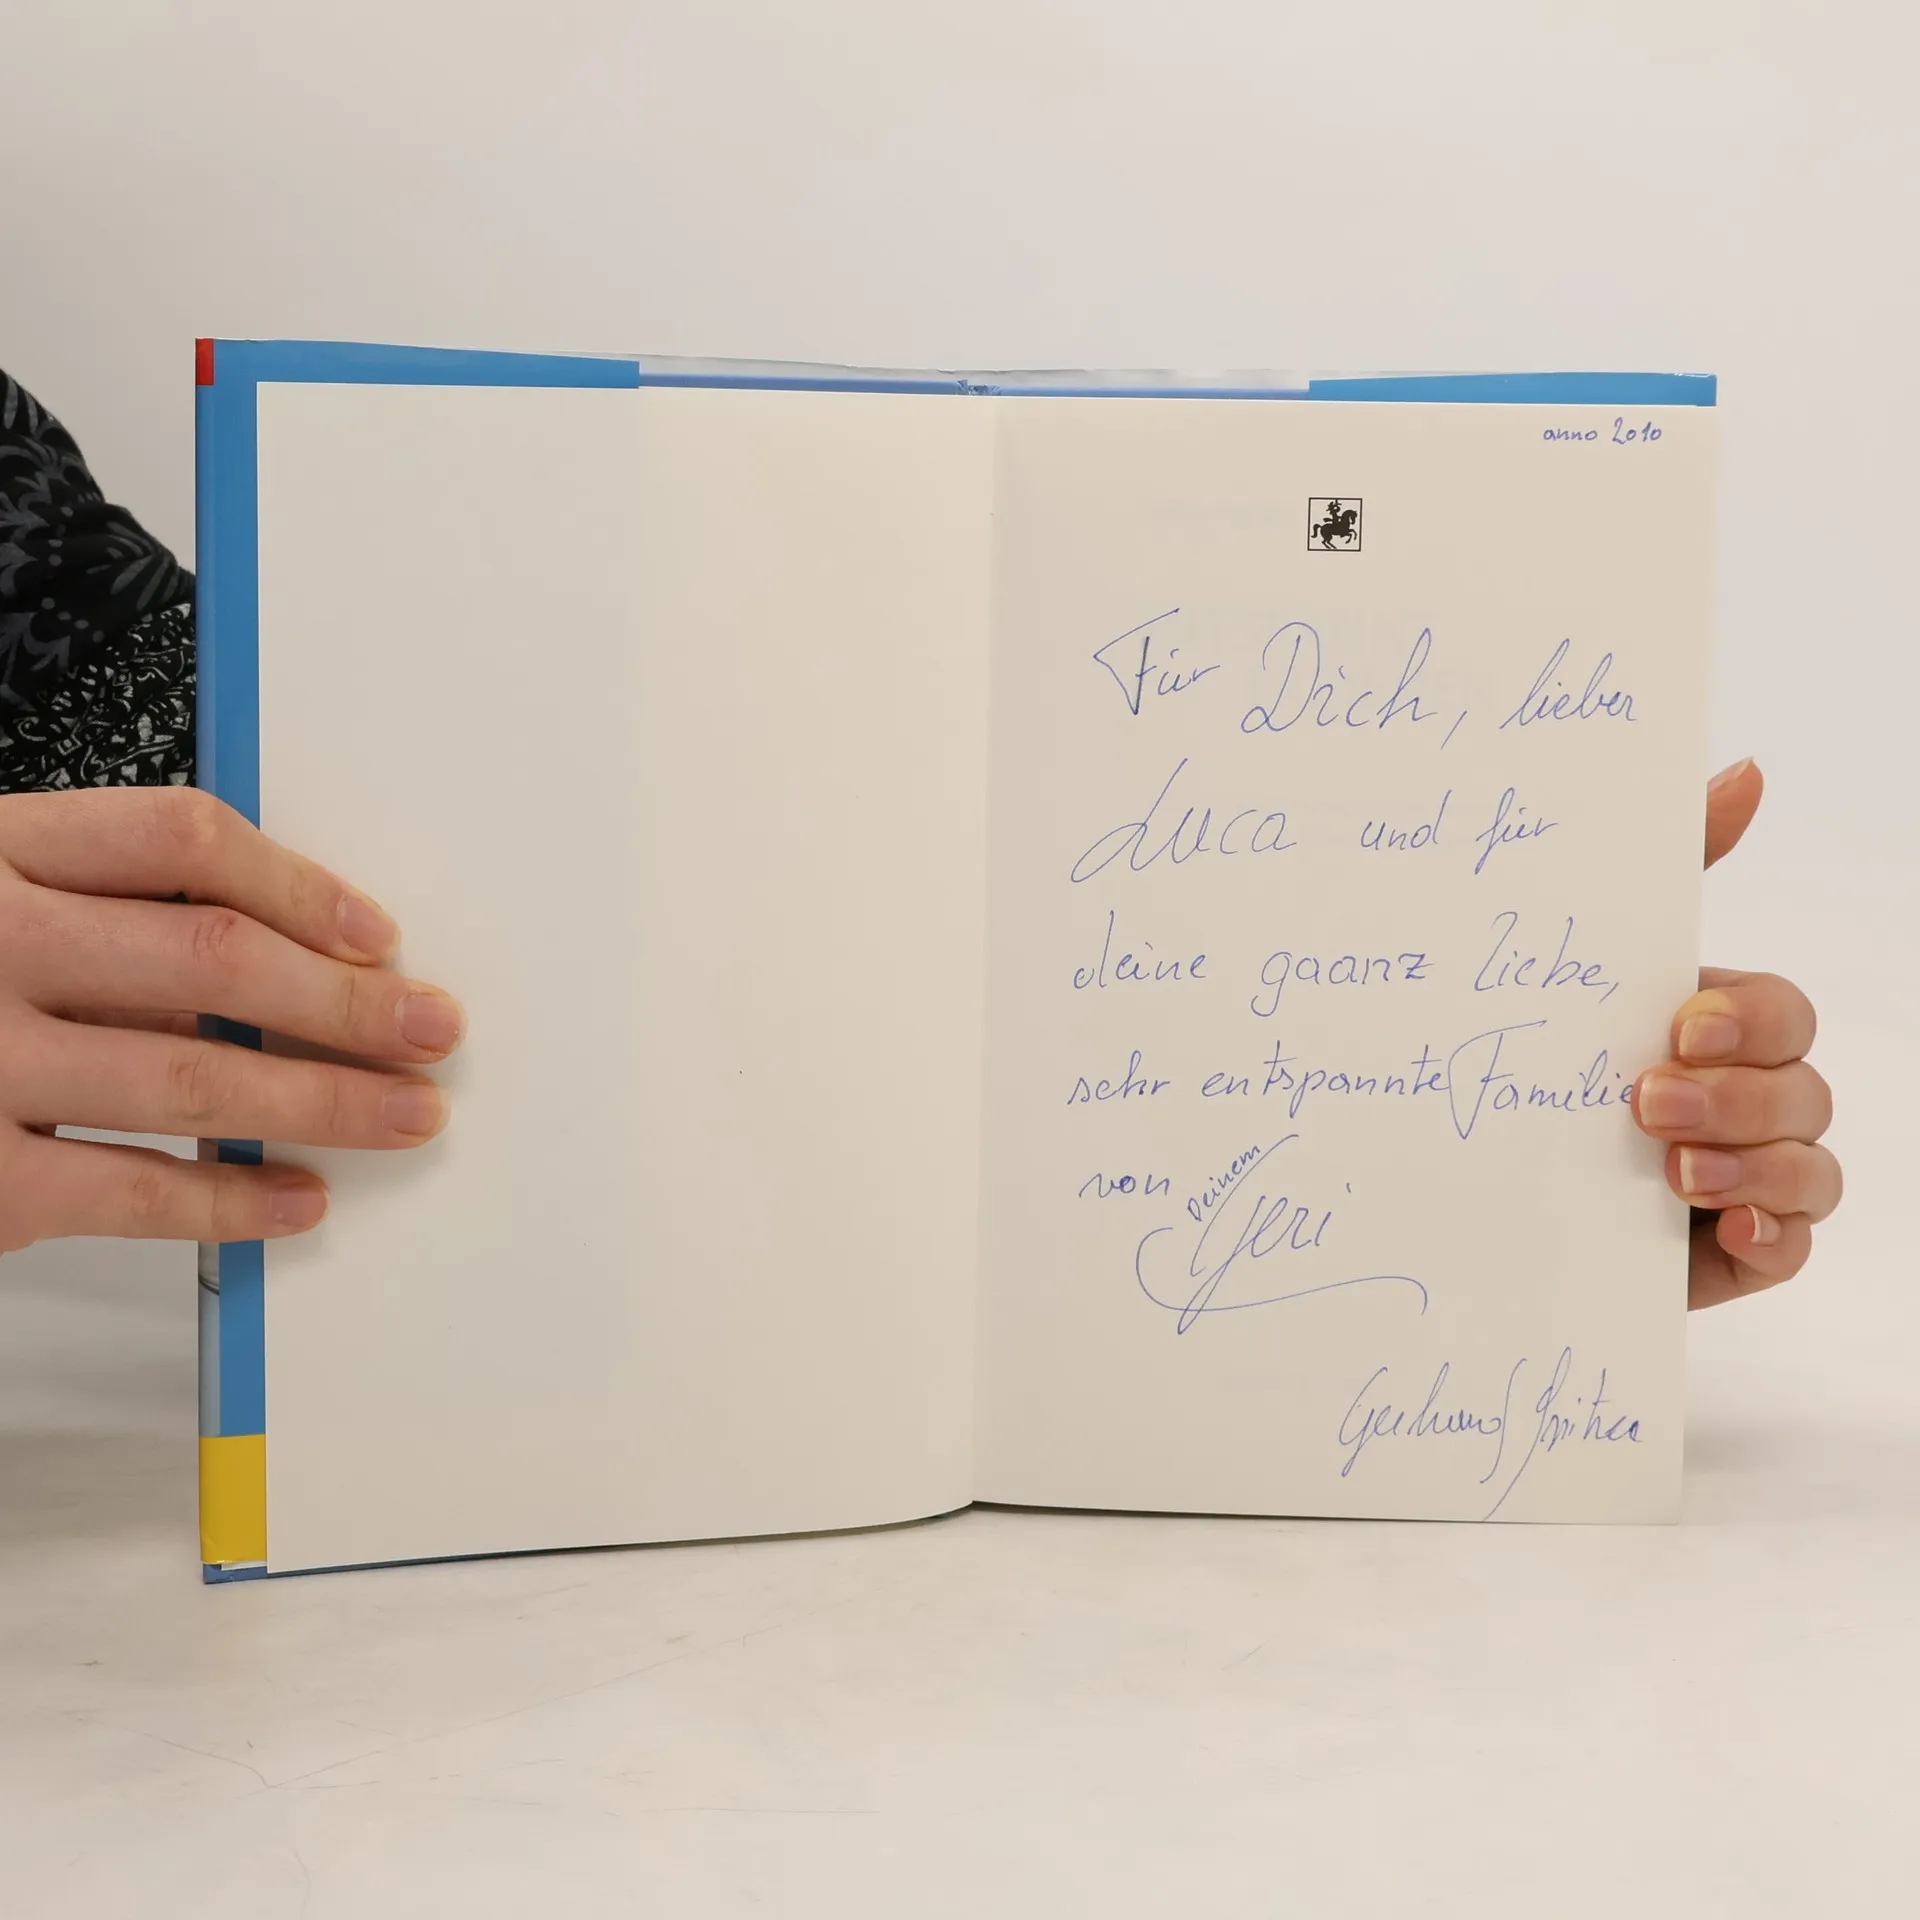 anno 2010
Für Dich, lieber
Luca und für
deine gaanz liebe,
sehr entspannte Familie
von Deinem
Geri
Gerhard Spitzer